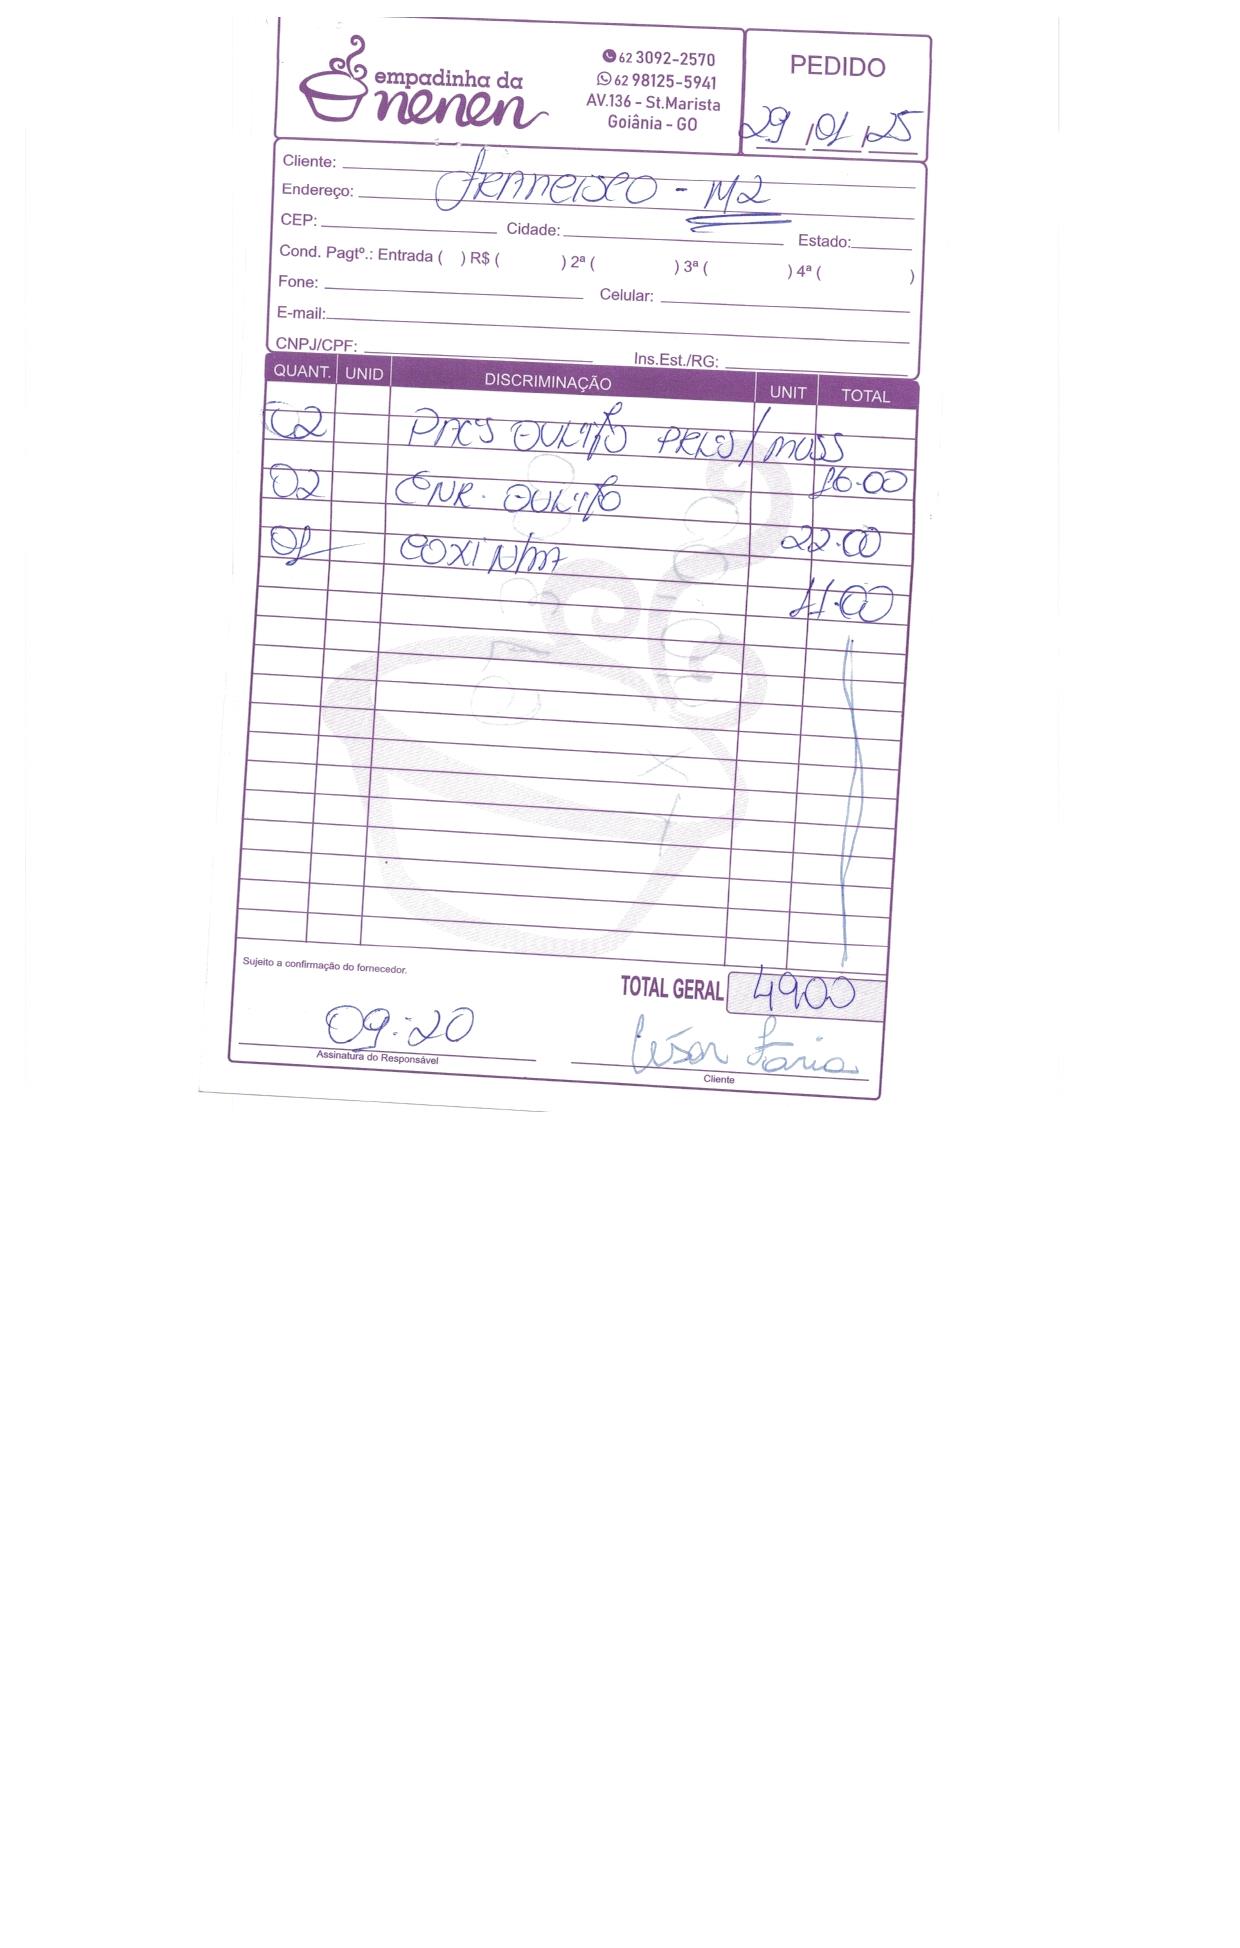 empadinha da
nenen
62 3092-2570
62 98125-5941
AV.136 - St.Marista
Goiânia - GO
PEDIDO
29/01/25
Cliente:
Francisco - M2
Endereço:
CEP: Cidade: Estado:
Cond. Pagtº.: Entrada ( ) R$ ( ) 2ª ( ) 3ª ( ) 4ª ( )
Fone: Celular:
E-mail:
CNPJ/CPF: Ins.Est./RG:
QUANT. UNID DISCRIMINAÇÃO UNIT TOTAL
02 / MUSS
16.00
02 ENR.
22.00
01 COXINHA
11.00
Sujeito a confirmação do fornecedor.
TOTAL GERAL 49,00
09:20 César Faria
Assinatura do Responsável Cliente